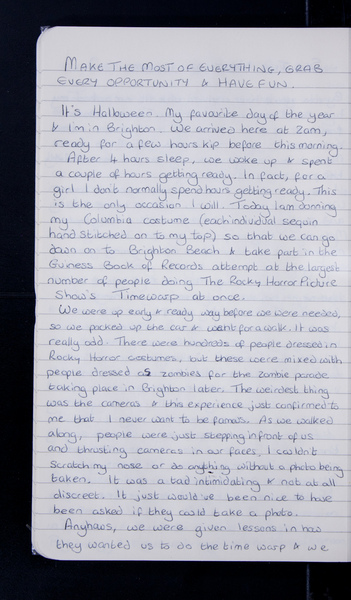 MAKE THE MOST OF EVERYTHING, GRAB
EVERY OPPORTUNITY & HAVE FUN.
It's Halloween. My favourite day of the year
& I'm in Brighton. We arrived here at 2am,
ready for a few hours kip before this morning.
After 4 hours sleep, we woke up & spent
a couple of hours getting ready. In fact, for a
girl I don't normally spend hours getting ready. This
is the only occasion I will. Today I am donning
my Columbia costume (each individual sequin
hand stitched on to my top) so that we can go
down on to Brighton Beach & take part in the
Guiness Book of Records attempt at the largest
number of people doing The Rocky Horror Picture
Show's Timewarp at once.
We were up early & ready way before we were needed,
so we packed up the car & went for a walk. It was
really odd. There were hundreds of people dressed in
Rocky Horror costumes, but these were mixed with
people dressed as zombies for the zombie parade
taking place in Brighton later. The weirdest thing
was the cameras & this experience just confirmed to
me that I never want to be famous. As we walked
along, people were just stepping in front of us
and thrusting cameras in our faces, I couldn't
scratch my nose or do anything without a photo being
taken. It was a tad intimidating & not at all
discreet. It just would've been nice to have
been asked if they could take a photo.
Anyhows, we were given lessons in how
they wanted us to do the time warp & we